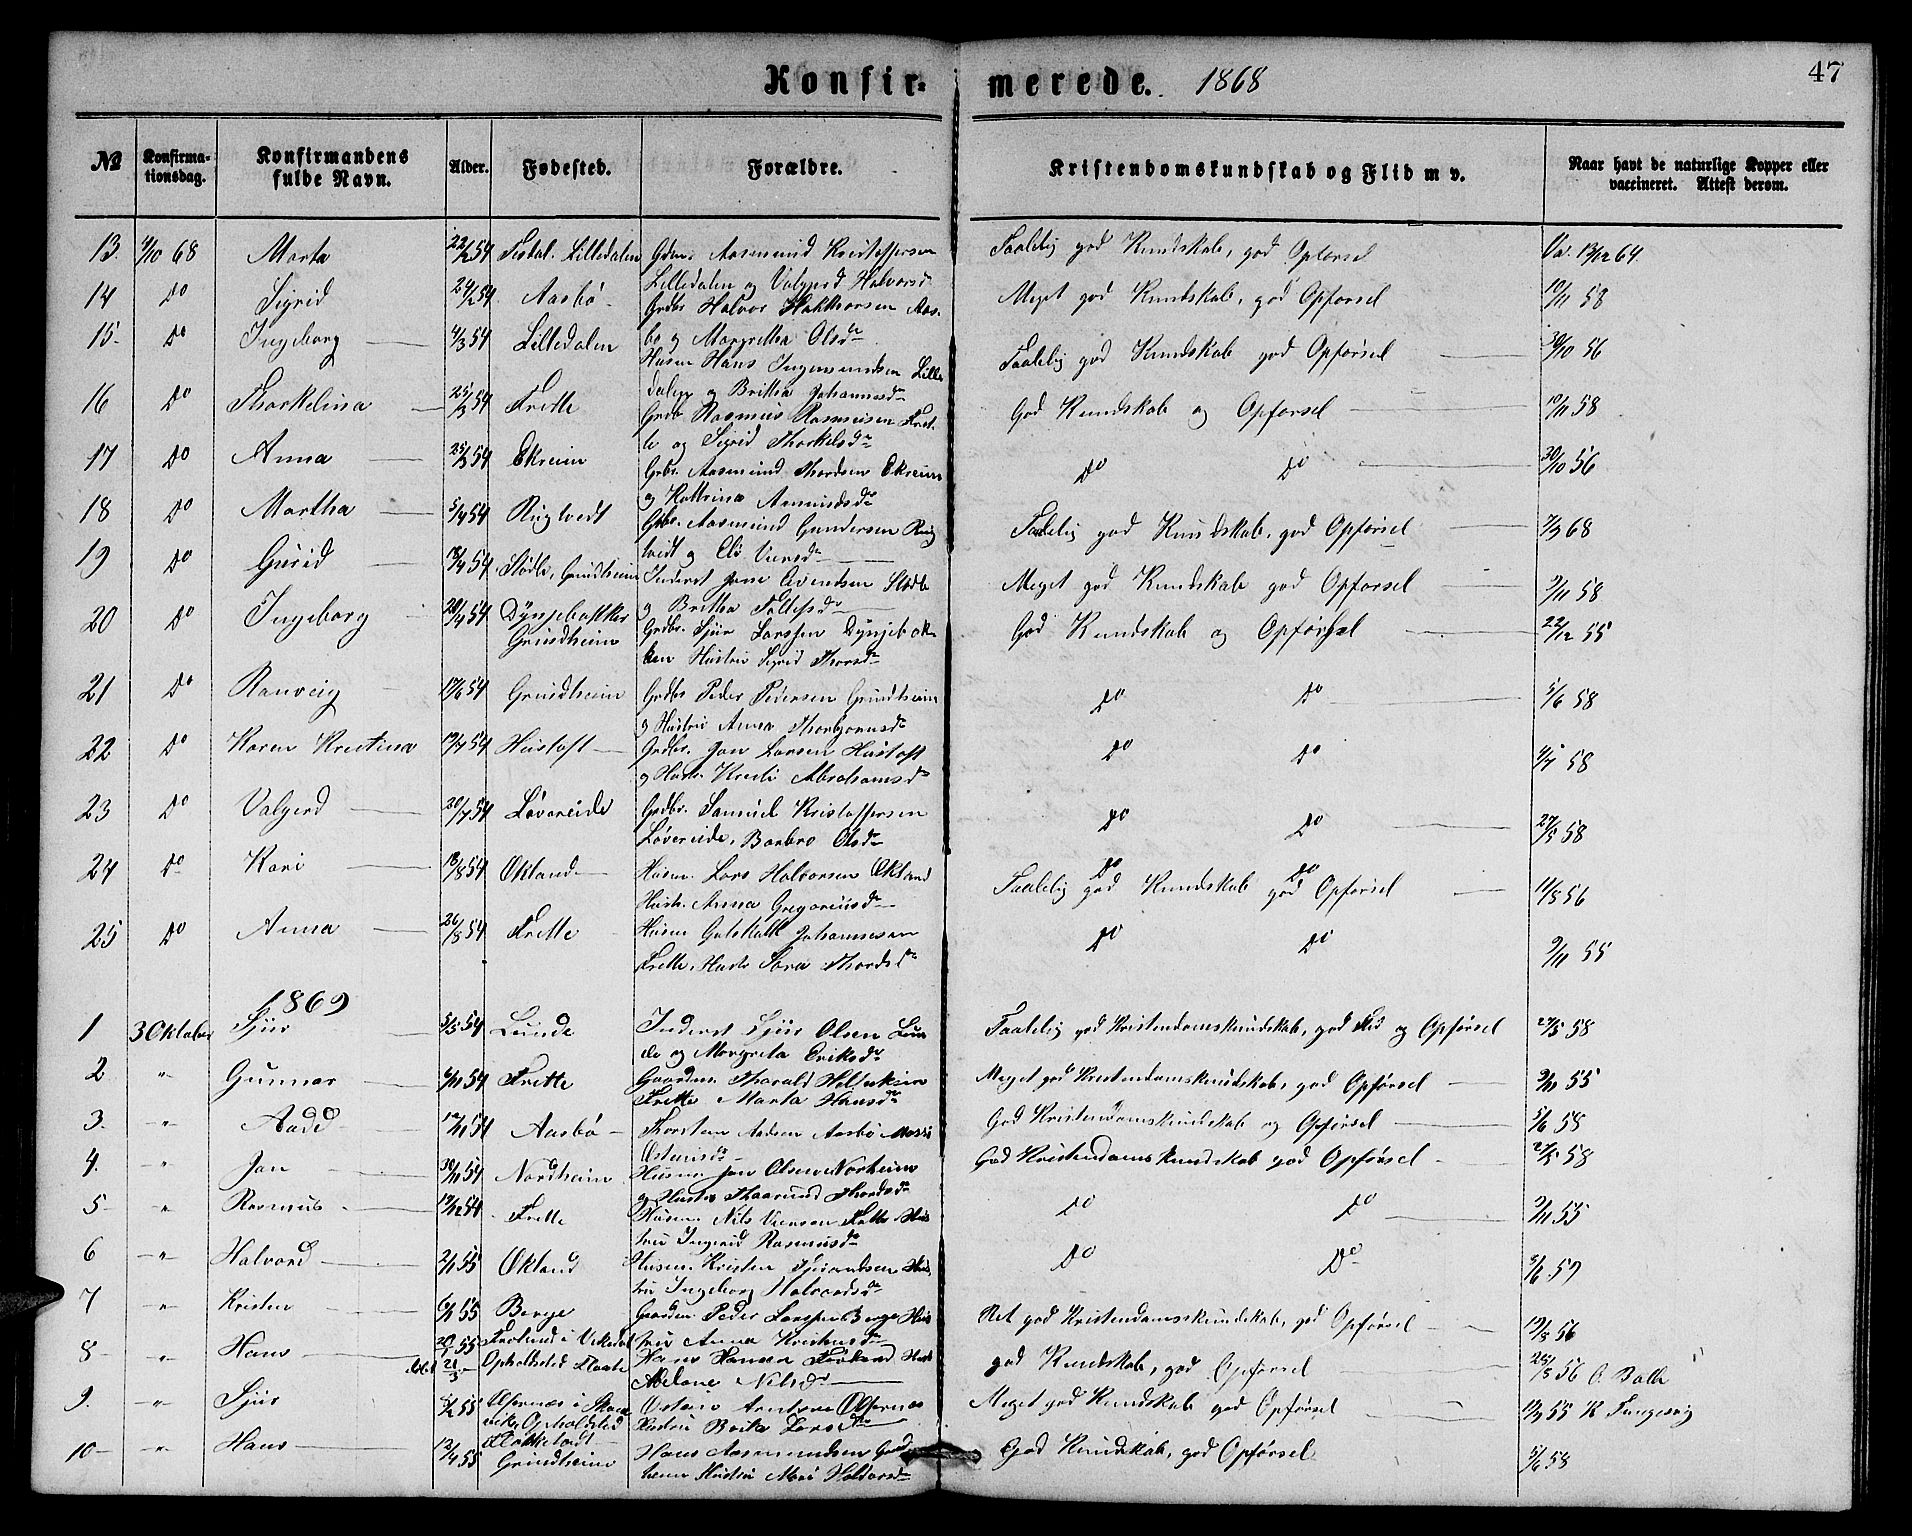 Konfirmerede. 1868
47
No
Konfirmationsdag.
Konfirmandens fulde Navn.
Alder.
Fødested.
Forældre.
Kristendomskundskab og Flid m v.
Naar havt de naturlige Kopper eller vaccineret. Attest derom.
13. 4/10 68 Marta 22/2 54 Lilledalen Gdm. Aasmund Kristoffersen Lilledalen og Valgjerd Halvorsd. Taalelig god Kundskab, god Opførsel Va. 13/12 64.
14 Do Sigrid 24/2 54 Aasbø Grdbr Halvor Aasbø og Margretha Olsdr Meget god Kundskab, god Opførsel 10/11 58
15 Do Ingeborg 4/3 54 Lilledalen Husm Hans Ingemundsen Lilledalen og Brittha Johannesdr Taalelig god Kundskab god Opførsel 30/10 56
16 Do Thorkelina 25/3 54 Frette Grdb Rasmus Rasmusen Frette og Sigrid Thorkelsdr God Kundskab og Opførsel 10/11 58
17 Do Anna 25/3 54 Ekreim Grbr. Aasmund Thordsen Ekreim og Kattrina Asmundsdr Do Do 30/10 56
18 Do Martha 5/4 54 Ruglvedt Grbr. Aasmund Gundersen Rug lvedt og Eli Viersdr Taalelig god Kundskab, god Opførsel 7/3 68
19 Do Gurid 18/4 54 Stødle, Grindheim Inderst Jone Eivendsen Stødle og Brittha Tollefsdr Meget god Kundskab god Opførsel 9/11 58
20 Do Ingeborg 28/4 54 Grindheim Grdbr. Sjur Larssen Hustru Sigrid Thorsdr God Kundskab og Opførsel 22/12 55
21 Do Ranveig 17/6 54 Grindheim Grdbr Peder Pedersen Grindheim og Hustru Anna Thorbjørnsdr Do Do 5/6 58
22 Do Karen Kristina 19/7 54 Hustoft Grdbr. Jon Larsen Hustoft og Hustr. Kristi Abrahamsdr Do Do 4/7 58
23 Do Valgerd 20/7 54 Løvereide Grdbr. Samuel Kristoffersen Løvereide, Barbro Olsdr Do Do 27/5 58
24 Do Kari 13/8 54 Økland Husm. Lars Halvorsen Økland Hustr. Anna Gregoriusdr Do Do Taalelig god Kundskab god Opførsel 11/5 56
25 Do Anna 26/8 54 Frette Husm Gotskalk Johannesen Frette, Hustr Sara Thordsdr Do Do 9/11 55
1869
1 3 Oktober Sjur 5/5 54 Lunde Inderst Sjur Olsen Lunde og Margreta Eriksdr Taalelig god Kristendomskundskab, god Flid og Opførsel 27/5 58
2 " Gunnar 6/11 54 Frette Gaardm. Tharald Frette Marta Hansdr Meget god Kristendomskundskab, god Opførsel 9/11 55
3. " Aad 17/11 54 Aasbø Thorsten Aadsen Aasbø God Kristendomskundskab og Opførsel 5/6 58
4. " Jon 30/11 54 Nordheim Husm. Jon Olsen Norheim og Hustru Thordsdr God Kristendomskundskab god Opførsel 27/5 58
5 " Rasmus 19/12 54 Frette Husm. Nils Viersen Hustru Ingerid Rasmusdr Do Do 9/11 55
6 " Halvard 2/1 55 Økland Husm. Kristen Hustru Ingeborg Halvardsdr Do Do 5/6 59
7 " Kristen 6/1 55 Berge Gaardm Peder Larssen Berge Hustru Anna Kristensdr Ret god Kristendomskundskab, god Opførsel 19/5 56
8 " Hans 20/1 55 i Vikedal Opholdssted Hans Hansen Abelone Nilsdr god Kundskab, god Opførsel 25/5 56
9. " Sjur 5/2 55 Ølfernæs i Opholdssted Østein Arntsen Ølfernæs Hustru Brita Larsdr Meget god Kundskab god Opførsel 19/9 55
10 " Hans 12/4 55 Grindheim Hans Aasmundsen Grindheim Hustru Mari Halvorsdr God Kundskab, god Opførsel 5/6 58